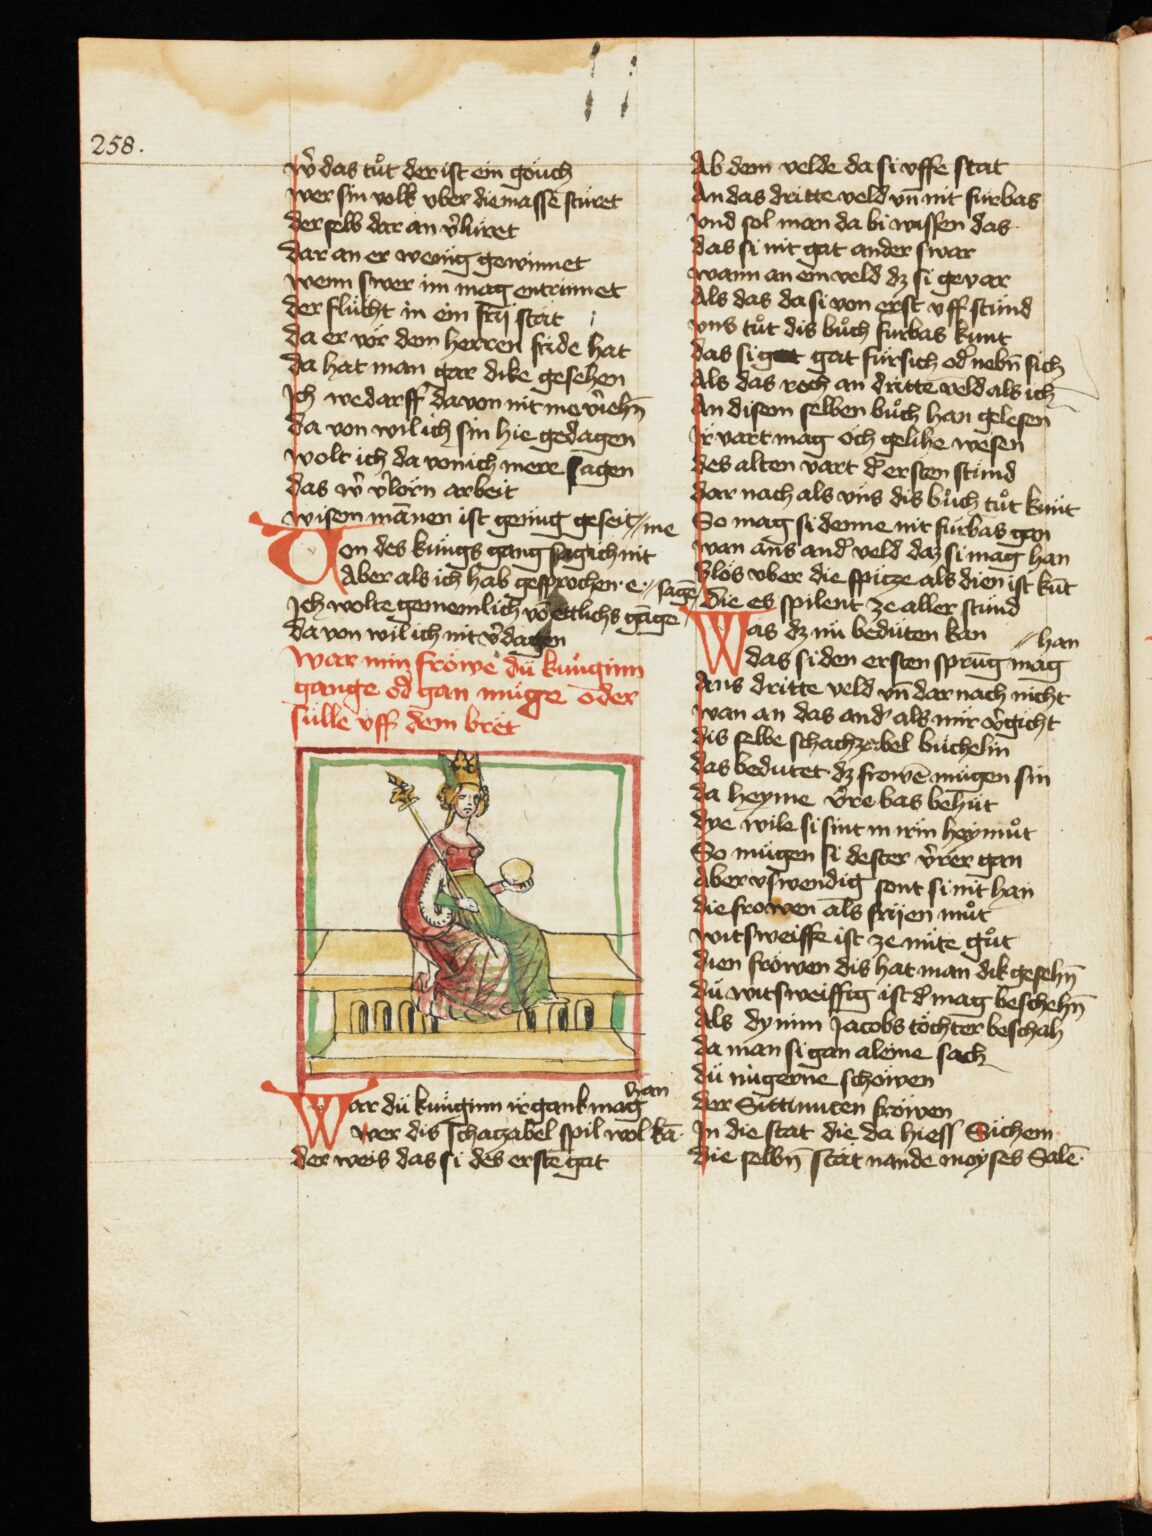 258.
w͛ das tuͦt der ist ein goͧch
wer sin volk vber die masse stúret
der selb dar an v͛lúret
dar an er wenig gewinnet
wenn swer im mag entrinnet
der flúcht in ein frÿ stat
da er vor dem herren fride hat
da hat man gar dike gesehen
Ich
da von wil ich sin hie gedagen
wolt ich da von ich mere sagen
das w͛ v͛lorn arbeit
wisem mānen ist genůg geseit // me
Von des kúngs gang sag ich nit
Aber als ich hab gesprochen e // sagē
Ich wolte gemeinlich vō etlichs gāge
da von wil ich nit v͛dagen
War min fröwe dú kúnginn
gange od gan múge oder
súlle vff dem bret
War dú kúnginn ir gank mag han
wer dis schachzabel spil wol kā
der weis das si des erste gat
Ab dem velde da si vffe stat
An das dritte veld vn̄ nit furbas
vnd sol man da bi wissen das
das si nit gat ander swar
wann an ein veld dz si gevar
Als das da si von erst vff stůnd
vns tuͦt dis buͦch furbas kunt
das si gat fúrsich od͛ nebn̄ sich
Als das roch an dritte veld als ich
An disem selben buͦch han gelesen
ir vart mag och gelihe wesen
des alten vart d͛ ersten stůnd
dar nach als vns dis buͦch tuͦt kunt
So mag si denne nit furbas gan
wan ans and͛ veld daz si mag han
blos vber die spitze als dien ist kūt
die es spilent ze aller stůnd
Was dz nu bedúten kan // han
das si den ersten sprūg mag
Ans dritte veld vn̄ dar nach nicht
wan an das and͛ als mir v͛gicht
dis selbe schachzabel búchelin
das bedutet dz frowē múgen sin
da heyme v͛re bas behuͦt
dye wile si sint in irin heymuͦt
So múgen si dester v͛rer gan
Aber vswendig sont si nit han
die frowen als frijen muͦt
witsweiffe ist ze núte guͦt
dien frowen dis hat man dik gesehn̄
dú witsweiffig ist d͛ mag beschehn̄
Als dynim Jacobs töchter beschah
da man si gan aleine sach
dú nu gerne schowen
der Sittinuten fröwen
In die stat die da hiess Sichem
die selbn̄ stat nande moyses Salē